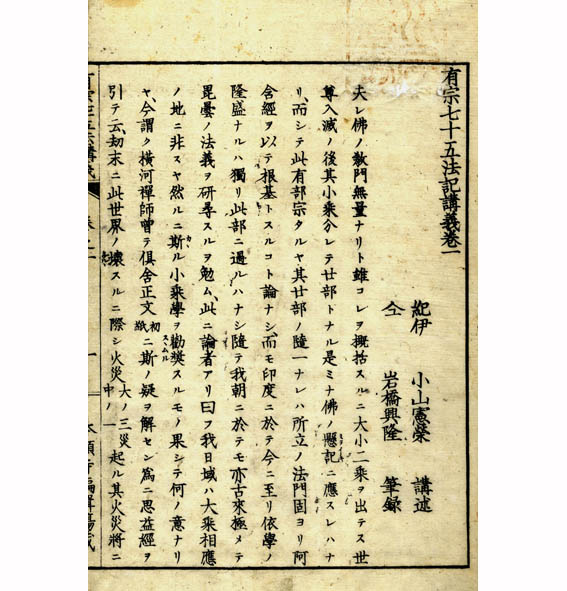 有宗七十五法記講義卷一
紀伊 小山憲榮 講述
仝 岩橋興隆 筆録
夫レ佛ノ敎門無量ナリト雖コレヲ概括スルニ大小二乘ヲ出テス世
尊入滅ノ後其小乘分レテ廿部トナル是ミナ佛ノ懸記ニ應スレハナ
リ、而シテ此有部宗タルヤ其廿部ノ隨一ナレハ所立ノ法門固ヨリ阿
含經ヲ以テ根基トスルコト論ナシ、而モ印度ニ於テ今ニ至リ依學ノ
隆盛ナルハ獨リ此部ニ過ルハナシ隨テ我朝ニ於テモ亦古來極メテ
毘曇ノ法義ヲ研尋スルヲ勉ム、此ニ論者アリ曰フ我日域ハ大乘相應
ノ地ニ非スヤ然ルニ斯ル小乘學ヲ勸奬スルモノ果シテ何ノ意ナリ
ヤ、今謂ク橫河禪師曾テ俱舍正文初紙ニ斯ノ疑ヲ解セン爲ニ思益經ヲ
引テ云劫末ニ此世界ノ壞スルニ際シ火災大ノ三災中ノ一起ル其火災將ニ